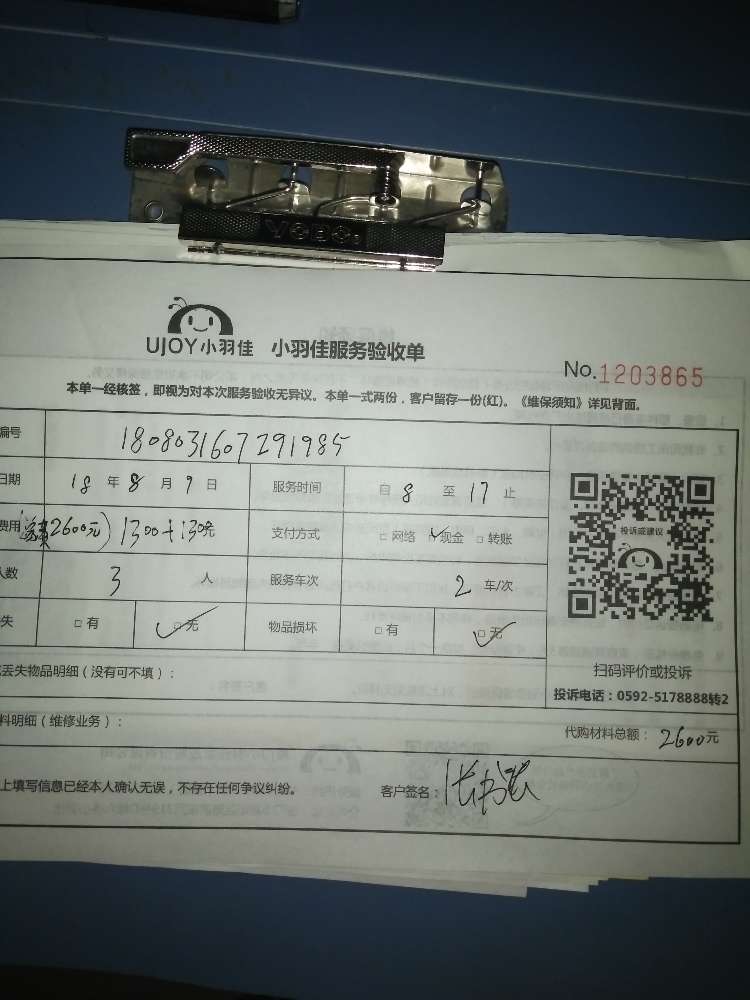 VOBO
UJOY小羽佳 小羽佳服务验收单
No.1203865
本单一经核签，即视为对本次服务验收无异议。本单一式两份，客户留存一份(红)。《维保须知》详见背面。
编号 180803160729 1985
日期 18 年 8 月 9 日 服务时间 自 8 至 17 止
费用 2600元) 1300+1300元 支付方式 □网络 ☑现金 □转账
人数 3 人 服务车次 2 车/次
失 □有 ☑无 物品损坏 □有 ☑无
投诉或建议
扫码评价或投诉
投诉电话：0592-5178888转2
丢失物品明细（没有可不填）：
料明细（维修业务）： 代购材料总额： 2600元
上填写信息已经本人确认无误，不存在任何争议纠纷。 客户签名：